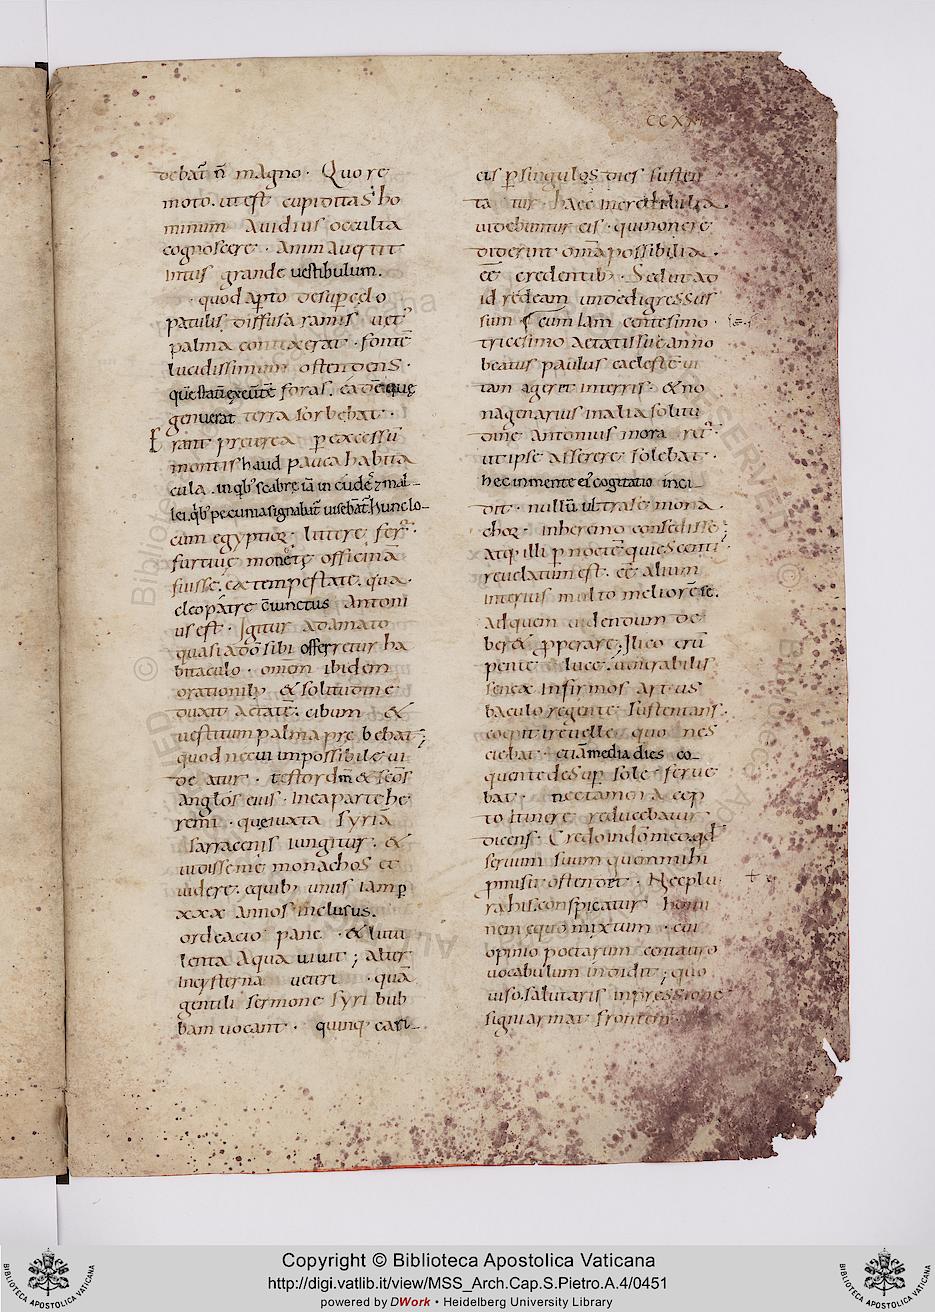 CCXX
debat̄ n̄ magno · Quo re
moto · ut est cupiditas ho
minum Avidius occulta
cognoscere · Animaverterit
intus grande vestibulum.
· quod apto desup celo
patulis diffusa ramis vet᷒
palma contexerat · fontē
lucidissimum ostendens ·
foras. eadē que
genuerat terra sorbebat ·
Erant preterea p excessū
montis haud pauca habita
cula . in qb᷒ scabre iā in cude & mal-
lei. qb᷒ pecunia signabat̄ visebat̄. hunc lo-
cum egyptior̄ littere fer᷒ ·
furtive monetę officinā
fuisse. ea tempestate. qua ·
cleopatre c̄iunctus Antoni
us est · Igitur adamato
quasi a dō sibi offerretur ha
bitaculo · omem ibidem
orationib; & solitudine
duxit aetatē. cibum &
vestitum palma prebebat;
quod ne cui impossibile vi
deatur · testor dn̄m & scōs
anglōs eius · In ea parte he
remi · que iuxta Syriā
sarracenis iungitur. &
vidisse me monachos et
videre. equib; unus iam p̱
xxx annos inclusus.
ordeacio pane · & lutu
lenta Aqua vivit ; alter
In cysterna veteri · quā
gentili sermone Syri bub
bam vocant · quinq; cari-
cis p̱ singulos dies susten
tatur · haec
videbuntur eis · qui non cre
diderint om̄a possibilia ·
ēē credentib; · Sed ut ad
id redeam unde digressus
sum · cum Iam centesimo ·
tricesimo aetatis sue anno
beatus paulus caelestē vi
tam ageret in terris · & no
nagenarius in alia solitu
dine Antonius mora ret᷒ ·
ut ipse asserere solebat ·
hec in mente ei᷒ cogitatio inci-
dit · nullū ultra se mona
chor̄ · in heremo consedisse ;
atq; illi p̱ noctē quiescenti ;
revelatum est · ēē alium
interius multo meliorē se.
Ad quem videndum de
ber& p̱perare. Ilico erū
pente luce. venerabilis
senex Infirmos artus
baculo regente sustentans.
coepit ire velle quo nes
ciebat · etiā media dies co-
quente desup̱ sole ferve
bat · nec tamen A cep
to Itinere reducebatur
dicens · Credo in dō meo. qd̄
servum suum quem mihi
p̱misit ostendet · Nec plu
ra his. conspicatur homi
nem equo mixtum · cui
opinio poetarum centauro
vocabulum indidit ; quo
viso. salutaris inpressione
signi armat frontem ·
Copyright © Biblioteca Apostolica Vaticana
http://digi.vatlib.it/view/MSS_Arch.Cap.S.Pietro.A.4/0451
powered by DWork • Heidelberg University Library